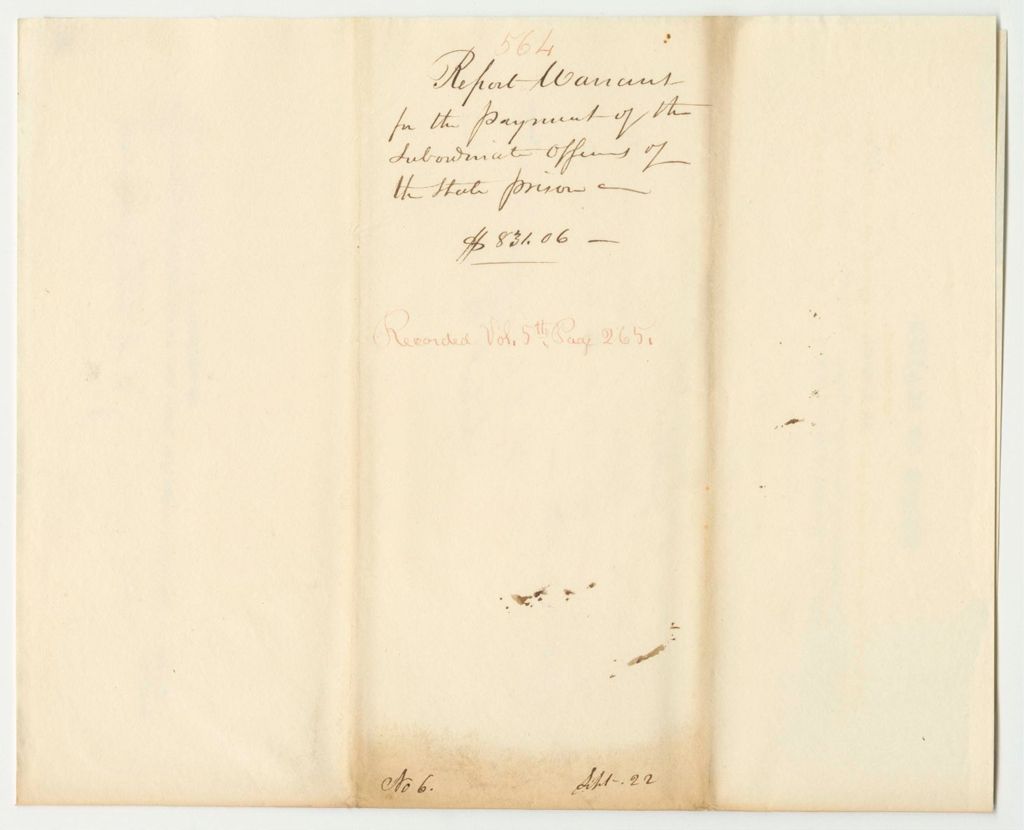 564
Report Warrant
for the payment of the
Subordinate Officers of
the State prison
$831.06 —
Recorded Vol. 5th. Page 265.
No 6.
Sept. 22